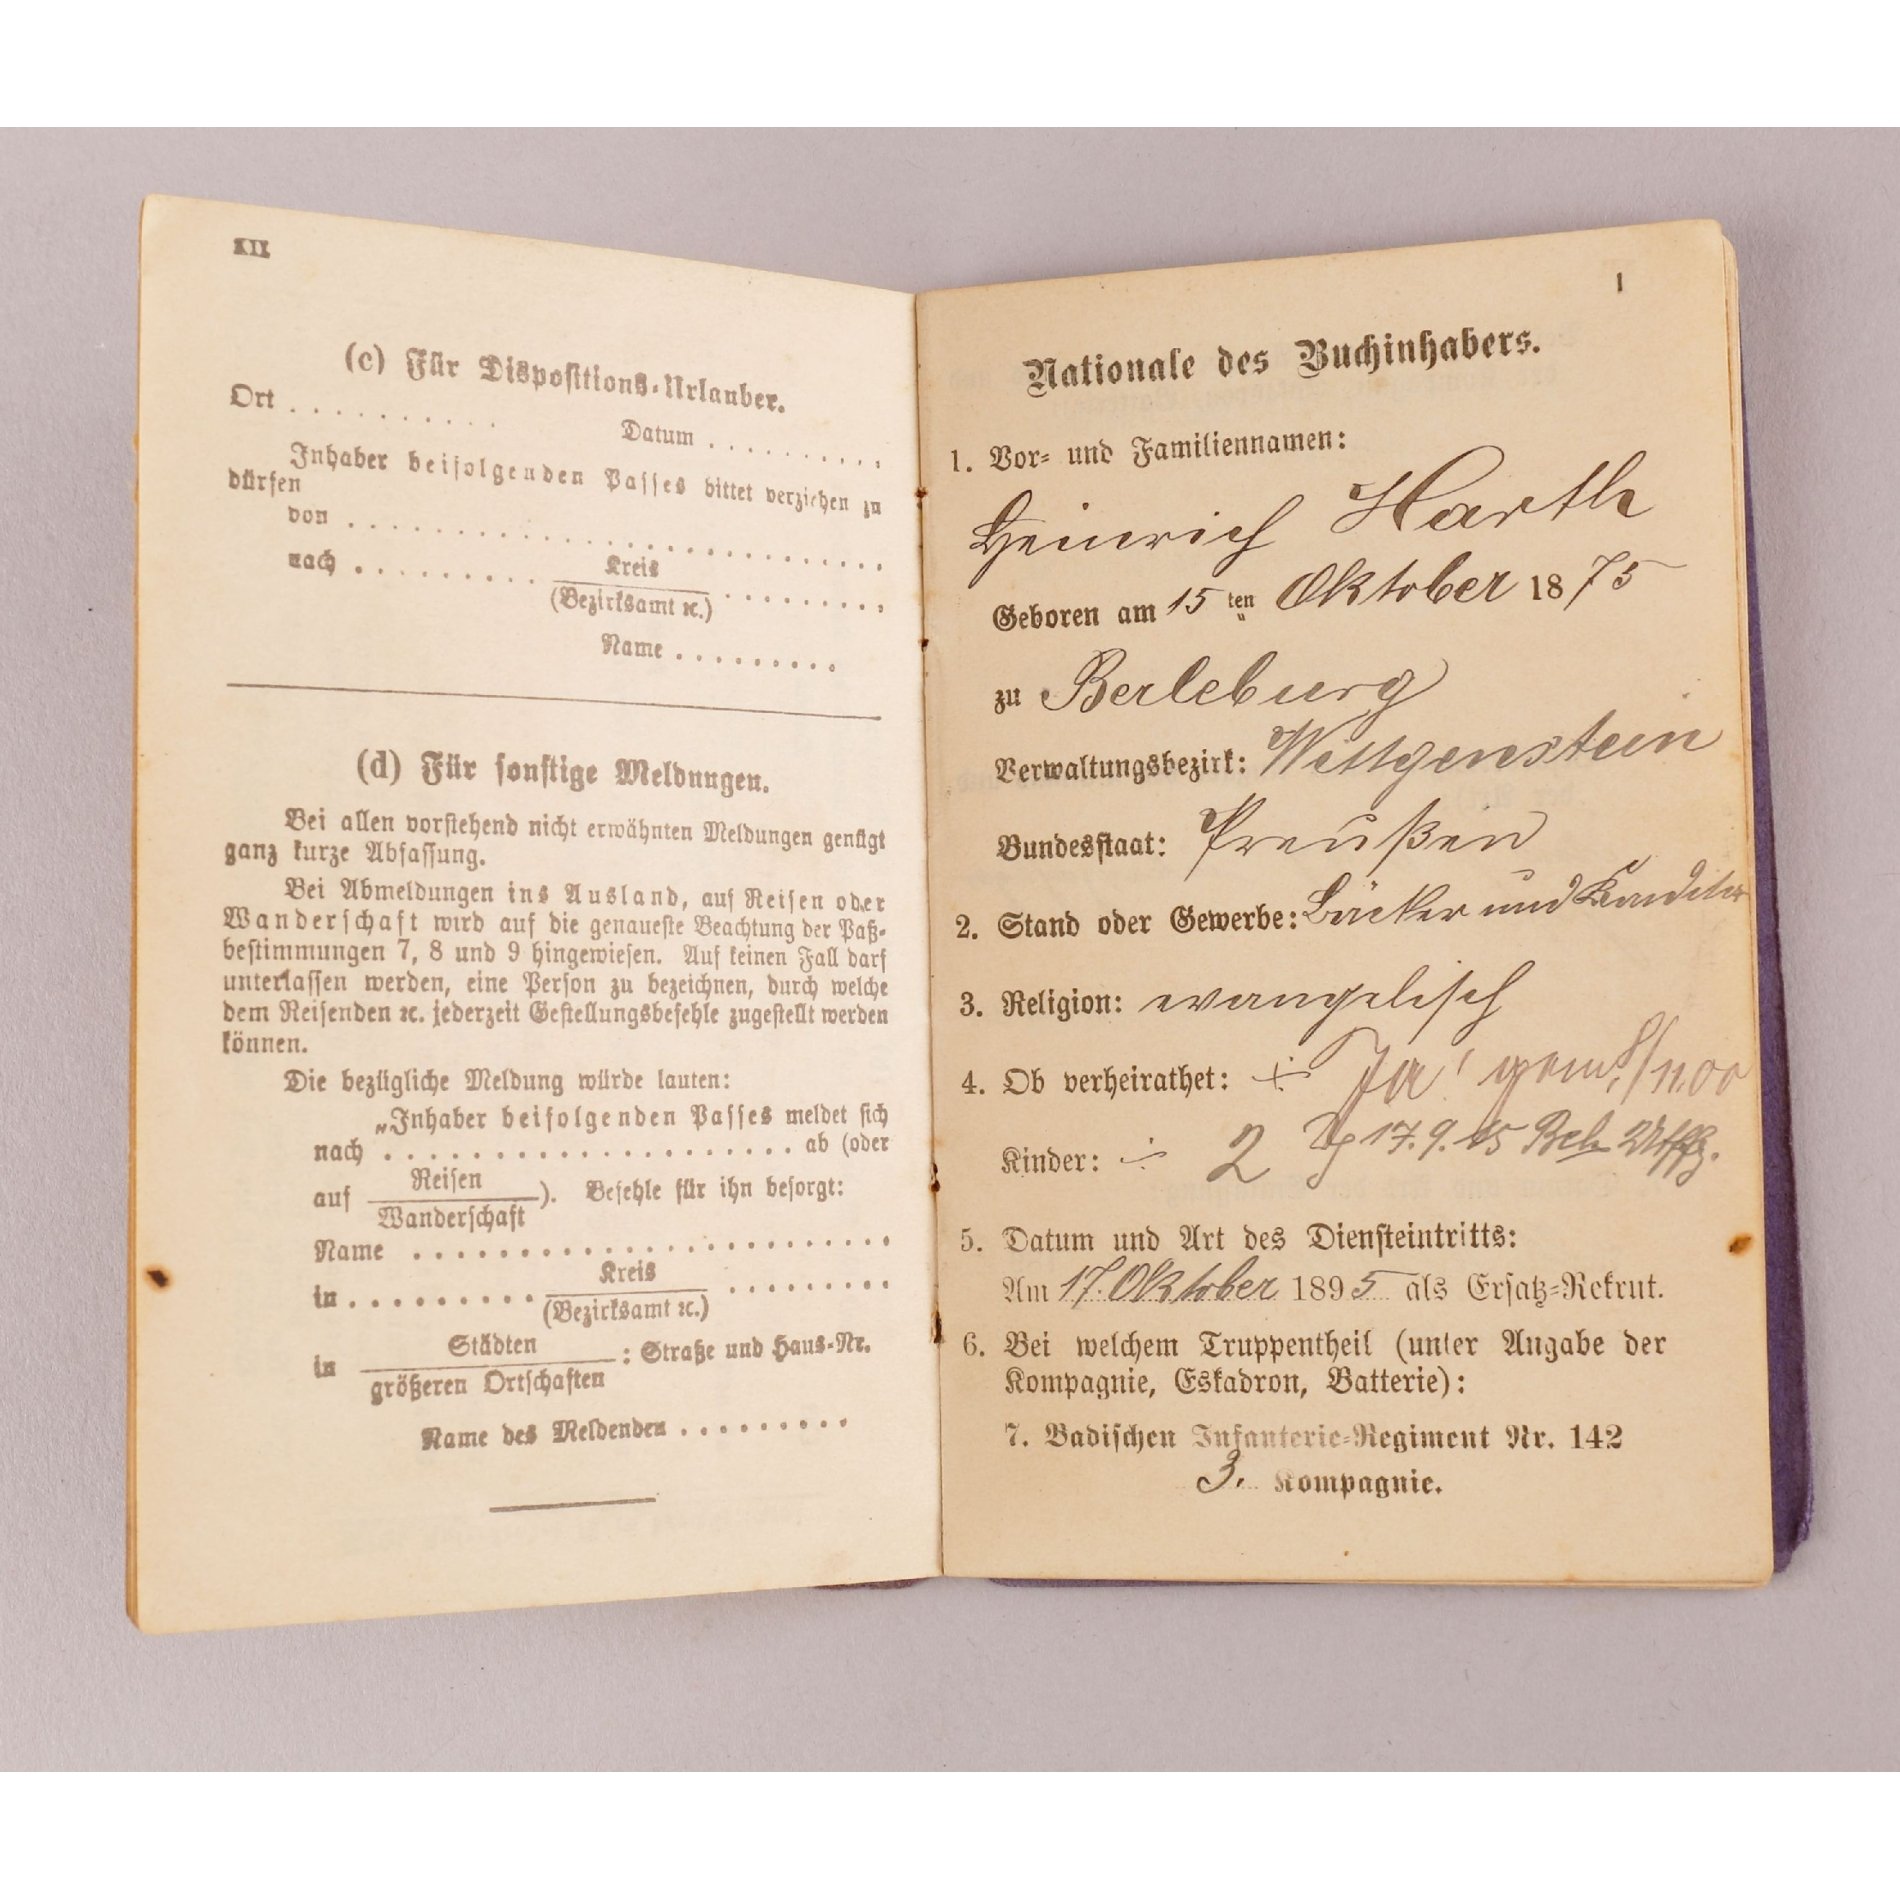 XII
(c) Für Dispositions-Urlauber.
Ort . . . . . . . . . . . Datum . . . . . . . . . .
Inhaber beifolgenden Passes bittet verziehen zu
dürfen
von . . . . . . . . . . . . . . . . . . . . . . . . . .
nach . . . . . . . . . Kreis . . . . . . . . .
(Bezirksamt ꝛc.)
Name . . . . . . . . .
(d) Für sonstige Meldungen.
Bei allen vorstehend nicht erwähnten Meldungen genügt
ganz kurze Abfassung.
Bei Abmeldungen ins Ausland, auf Reisen oder
Wanderschaft wird auf die genaueste Beachtung der Paß-
bestimmungen 7, 8 und 9 hingewiesen. Auf keinen Fall darf
unterlassen werden, eine Person zu bezeichnen, durch welche
dem Reisenden ꝛc. jederzeit Gestellungsbefehle zugestellt werden
können.
Die bezügliche Meldung würde lauten:
„Inhaber beifolgenden Passes meldet sich
nach . . . . . . . . . . . . . . . . . . . . ab (oder
auf Reisen
Wanderschaft ). Befehle für ihn besorgt:
Name . . . . . . . . . . . . . . . . . . . . . . .
in . . . . . . . . . Kreis . . . . . . . . .
(Bezirksamt ꝛc.)
in Städten
größeren Ortschaften : Straße und Haus-Nr.
Name des Meldenden . . . . . . . . .
1
Nationale des Buchinhabers.
1. Vor- und Familiennamen:
Heinrich Harth
Geboren am 15 ten Oktober 1875
zu Berleburg
Verwaltungsbezirk: Wittgenstein
Bundesstaat: Preußen
2. Stand oder Gewerbe: Bäcker und Konditor
3. Religion: evangelisch
4. Ob verheirathet: ÷ Ja!
Kinder: ÷ 2 17.9.15
5. Datum und Art des Diensteintritts:
Am 17. Oktober 1895 als Ersatz-Rekrut.
6. Bei welchem Truppentheil (unter Angabe der
Kompagnie, Eskadron, Batterie):
7. Badischen Infanterie-Regiment Nr. 142
3. Kompagnie.